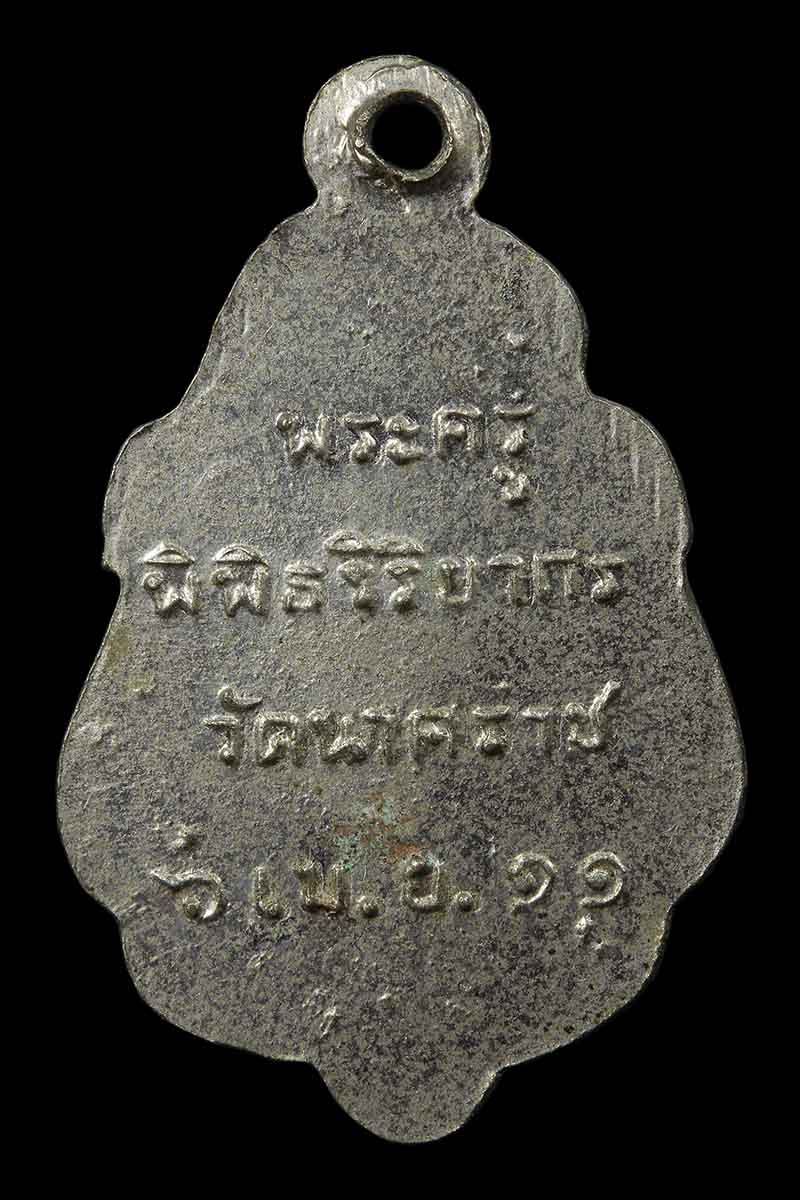 พระครู
พิพิธวิริยาภร
วัดนาคราช
๖ เม.ย. ๑๑